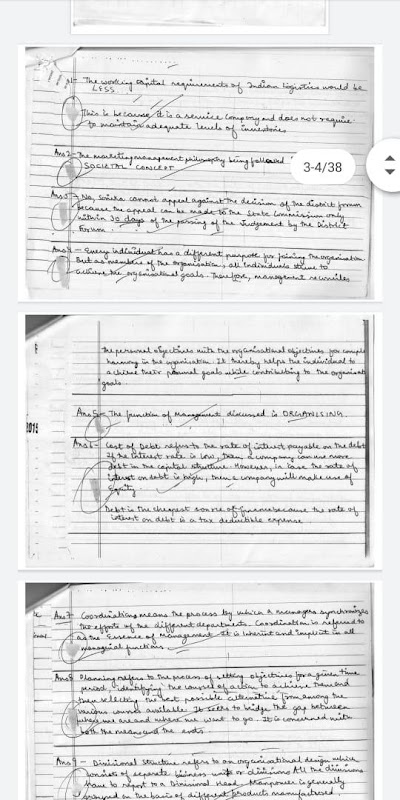 1- The working capital requirements of Indian logistics would be
LESS.
This is because it is a service company and does not require
to maintain adequate levels of inventories
Ans2- The marketing management philosophy being followed
SOCIETAL CONCEPT
3-4/38
Ans3- No, cannot appeal against the decision of the district forum
because the appeal can be made to the State Commission only
within 30 days of the passing of the judgement by the District
Forum.
Ans4- Every individual has a different purpose for joining the organisation
But as members of the organisation, all individuals strive to
achieve the organisational goals. Therefore, management reconciles
the personal objectives with the organisational objectives
harmony in the organisation. It thereby helps the individual to
achieve their personal goals while contributing to the
goals
2015
Ans5- The function of Management discussed is ORGANISING.
Ans6- Cost of Debt refers to the rate of interest payable on the debt
If the interest rate is low, then a company can use more
debt in the capital structure. However, in case the rate of
interest on debt is high, then a company will make use of
Equity.
Debt is the cheapest source of finance because the rate of
interest on debt is a tax deductible expense
Ans7- Coordination means the process by which a manager synchronizes
the efforts of the different departments. Coordination is referred to
as the Essence of Management. It is inherent and implicit in all
managerial functions
Ans8 Planning refers to the process of setting objectives for a given time
period, identifying the courses of action to achieve them and
then selecting the best possible alternative from among the
various courses available. It seeks to bridge the gap between
where we are and where we want to go. It is concerned with
both the means and the ends
Ans9- Divisional structure refers to an organisational design which
consists of separate business units or divisions. All the divisions
have to report to a Divisional Head. Manpower is generally
on the basis of different products manufactured.